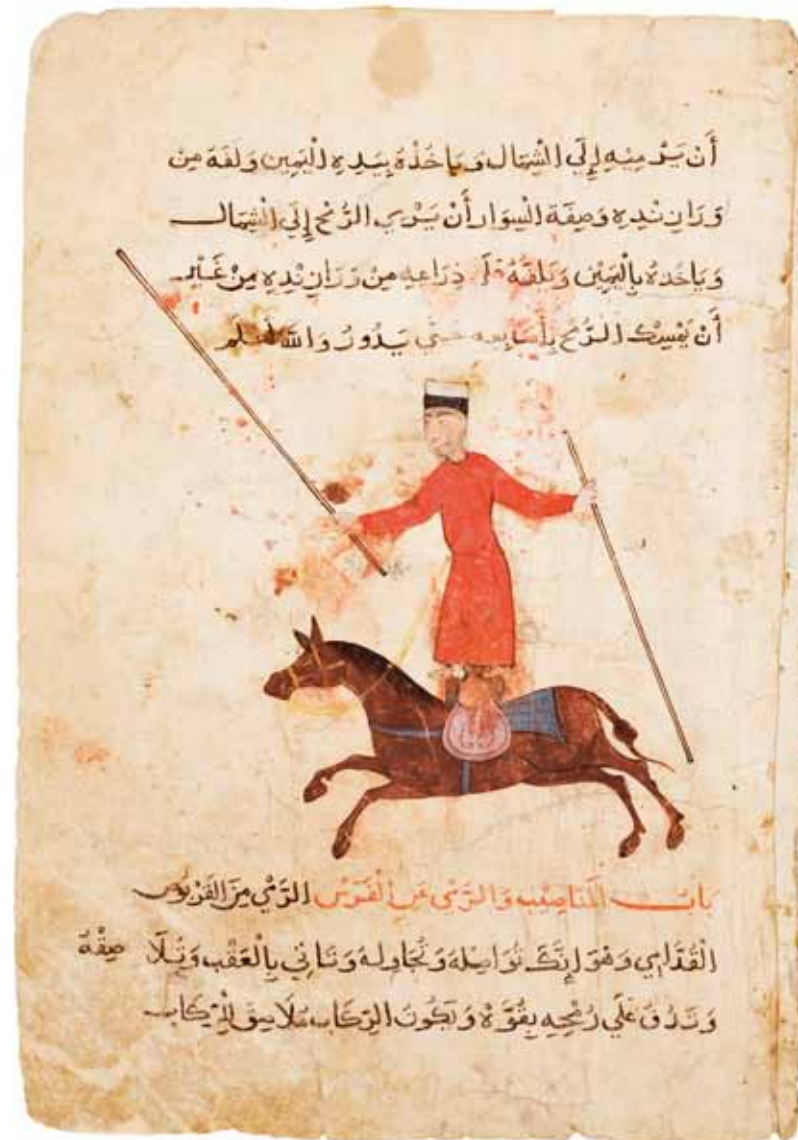 أَنْ يَرْمِيَهِ إِلَى الْشِمَال وَيَاخُذْهُ بِيَدِهِ الْيَمِين وَلَفَهُ مِن
وَرَا زِنْدِهِ وَصِفَة الْسِوَار أَنْ يَرْمِي الرُمْح إِلَى الْشِمَال
وَيَاخُدهُ بِالْيَمِيْن وَيَلُفَّهُ عَلَى ذِرَاعِهِ مِنْ وَرَا زِنْدِهِ مِنْ غَيْر
أَنْ يَمْسِك الرُمْح بِأَصَابِعِه حَتَّى يَدُورُ وَاللهُ أَعْلَم
بَابُ الْمَنَاصِيْب وَالرَّمْي عَنِ الْقَوْسِ الرَّمْيُ مِنَ الْقَرْبُوص
الْقُدَّامِي وَهْوَ إِنَّكَ تُوَاصِلهُ وَتُجَاوِلهُ وَتَاتِي بِالْعَقْب صِفَهُ
وَتَدُقُ عَلَى رُمْحِهِ بِقُوَّةْ وَيَكُونُ الرِكَاب مُلَاصِق لِلْرِكَاب